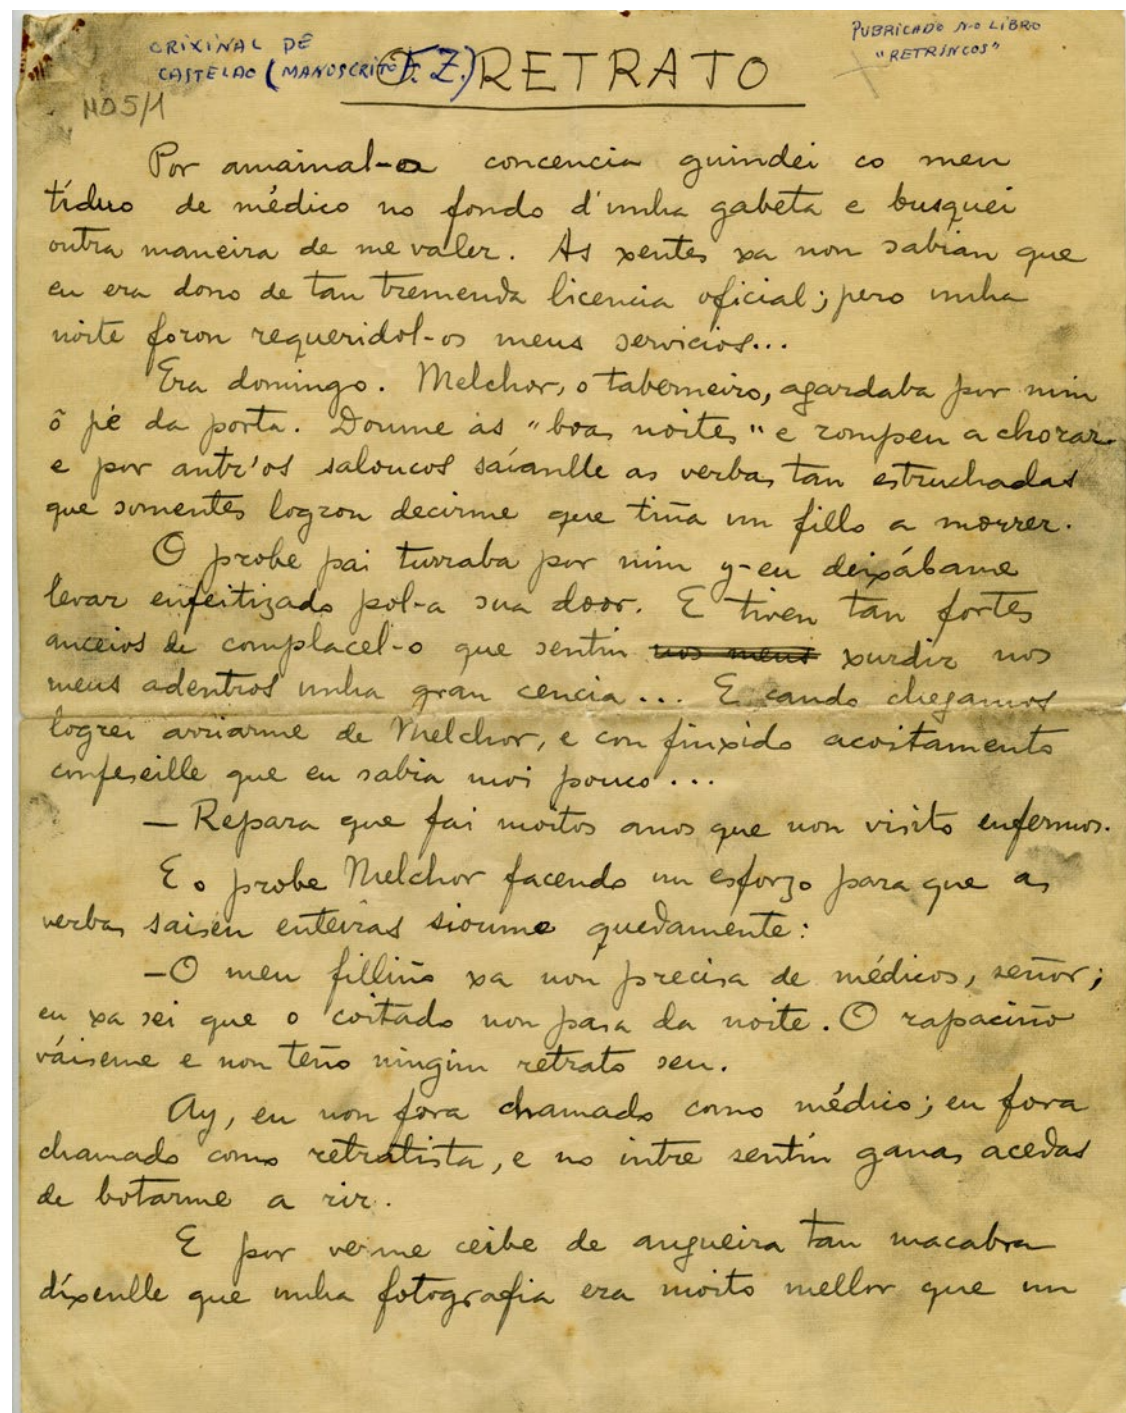 ORIXINAL DE
CASTELAO (MANOSCRITO F. Z.)
PUBRICADO N-O LIBRO
"RETRINCOS"
MD5/1
O RETRATO
Por amainal-a concencia guindei co meu
tíduo de médico no fondo d'unha gabeta e busquei
outra maneira de me valer. As xentes xa non sabían que
eu era dono de tan tremenda licencia oficial; pero unha
noite foron requeridol-os meus servicios...
Era domingo. Melchor, o taberneiro, agardaba por min
ô pé da porta. Doume as "boas noites" e rompeu a chorar
e por antr'os saloucos saíanlle as verbas tan estruchadas
que somentes logrou decirme que tiña un fillo a morrer.
O probe pai turraba por min y-eu deixábame
levar enfeitizado pol-a sua door. E tiven tan fortes
anceios de complacel-o que sentín nos meus xurdir nos
meus adentros unha gran cencia... E cando chegamos
logrei arriarme de Melchor, e con finxido acoitamento
confeseille que eu sabía moi pouco...
— Repara que fai moitos anos que non visito enfermos.
E o probe Melchor facendo un esforzo para que as
verbas saisen enteiras sioume quedamente:
—O meu filliño xa non precisa de médicos, señor;
eu xa sei que o coitado non pasa da noite. O rapaciño
váiseme e non teño ningún retrato seu.
Ay, eu non fora chamado como médico; eu fora
chamado como retratista, e no intre sentín ganas acedas
de botarme a rir.
E por verme ceibe de angueira tan macabra
díxenlle que unha fotografía era moito mellor que un